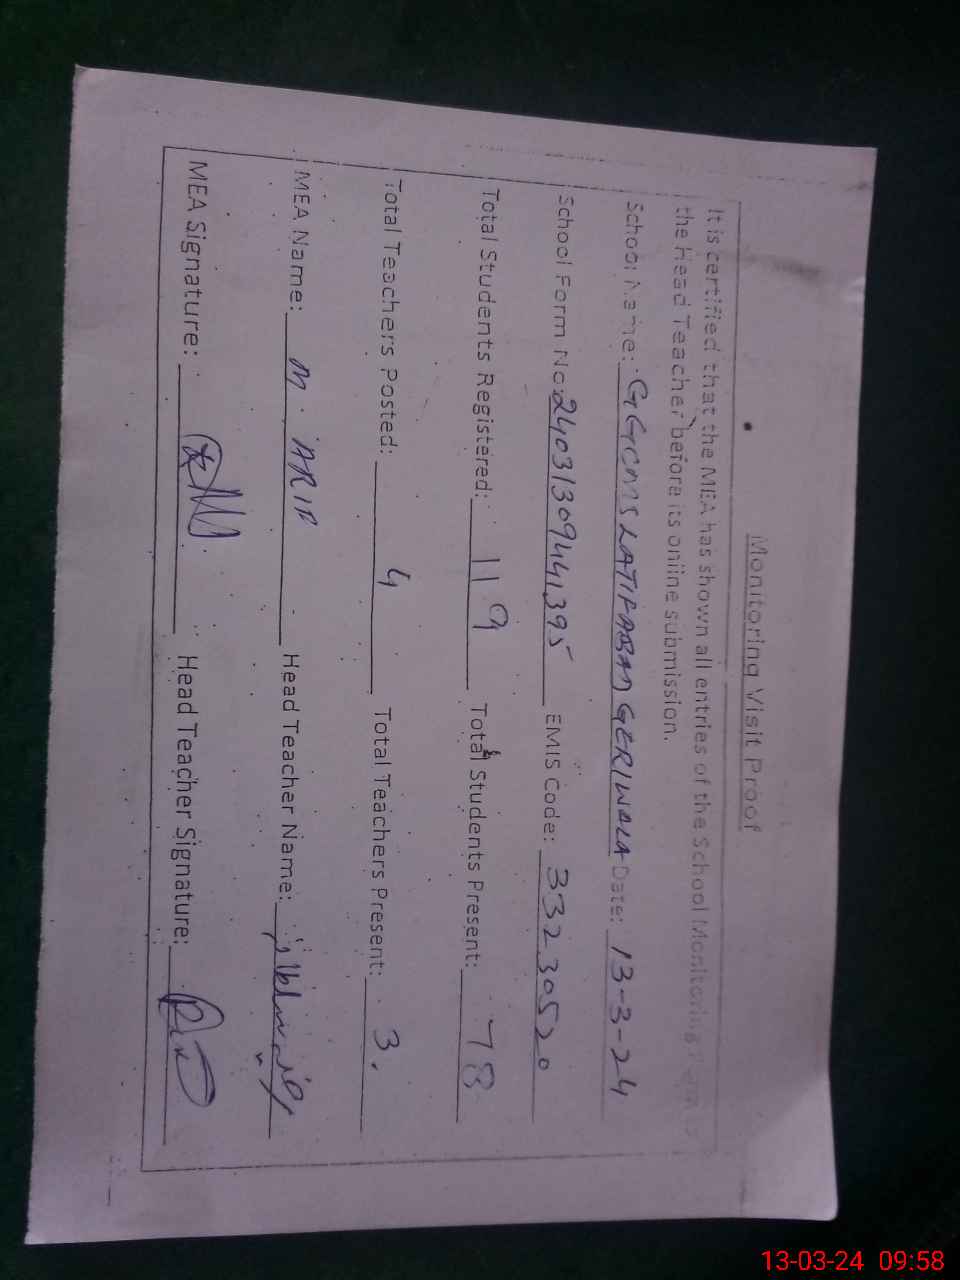 Monitoring Visit Proof
It is certified that the MEA has shown all entries of the School Monitoring Form to
the Head Teacher before its online submission.
School Name: GGCMS LATIFABAD GERIWALA Date: 13-3-24
School Form No: 240313094441395 EMIS Code: 33230520
Total Students Registered: 119 Total Students Present: 78
Total Teachers Posted: 4 Total Teachers Present: 3.
MEA Name: M. ARIF Head Teacher Name:
MEA Signature: Head Teacher Signature:
13-03-24 09:58